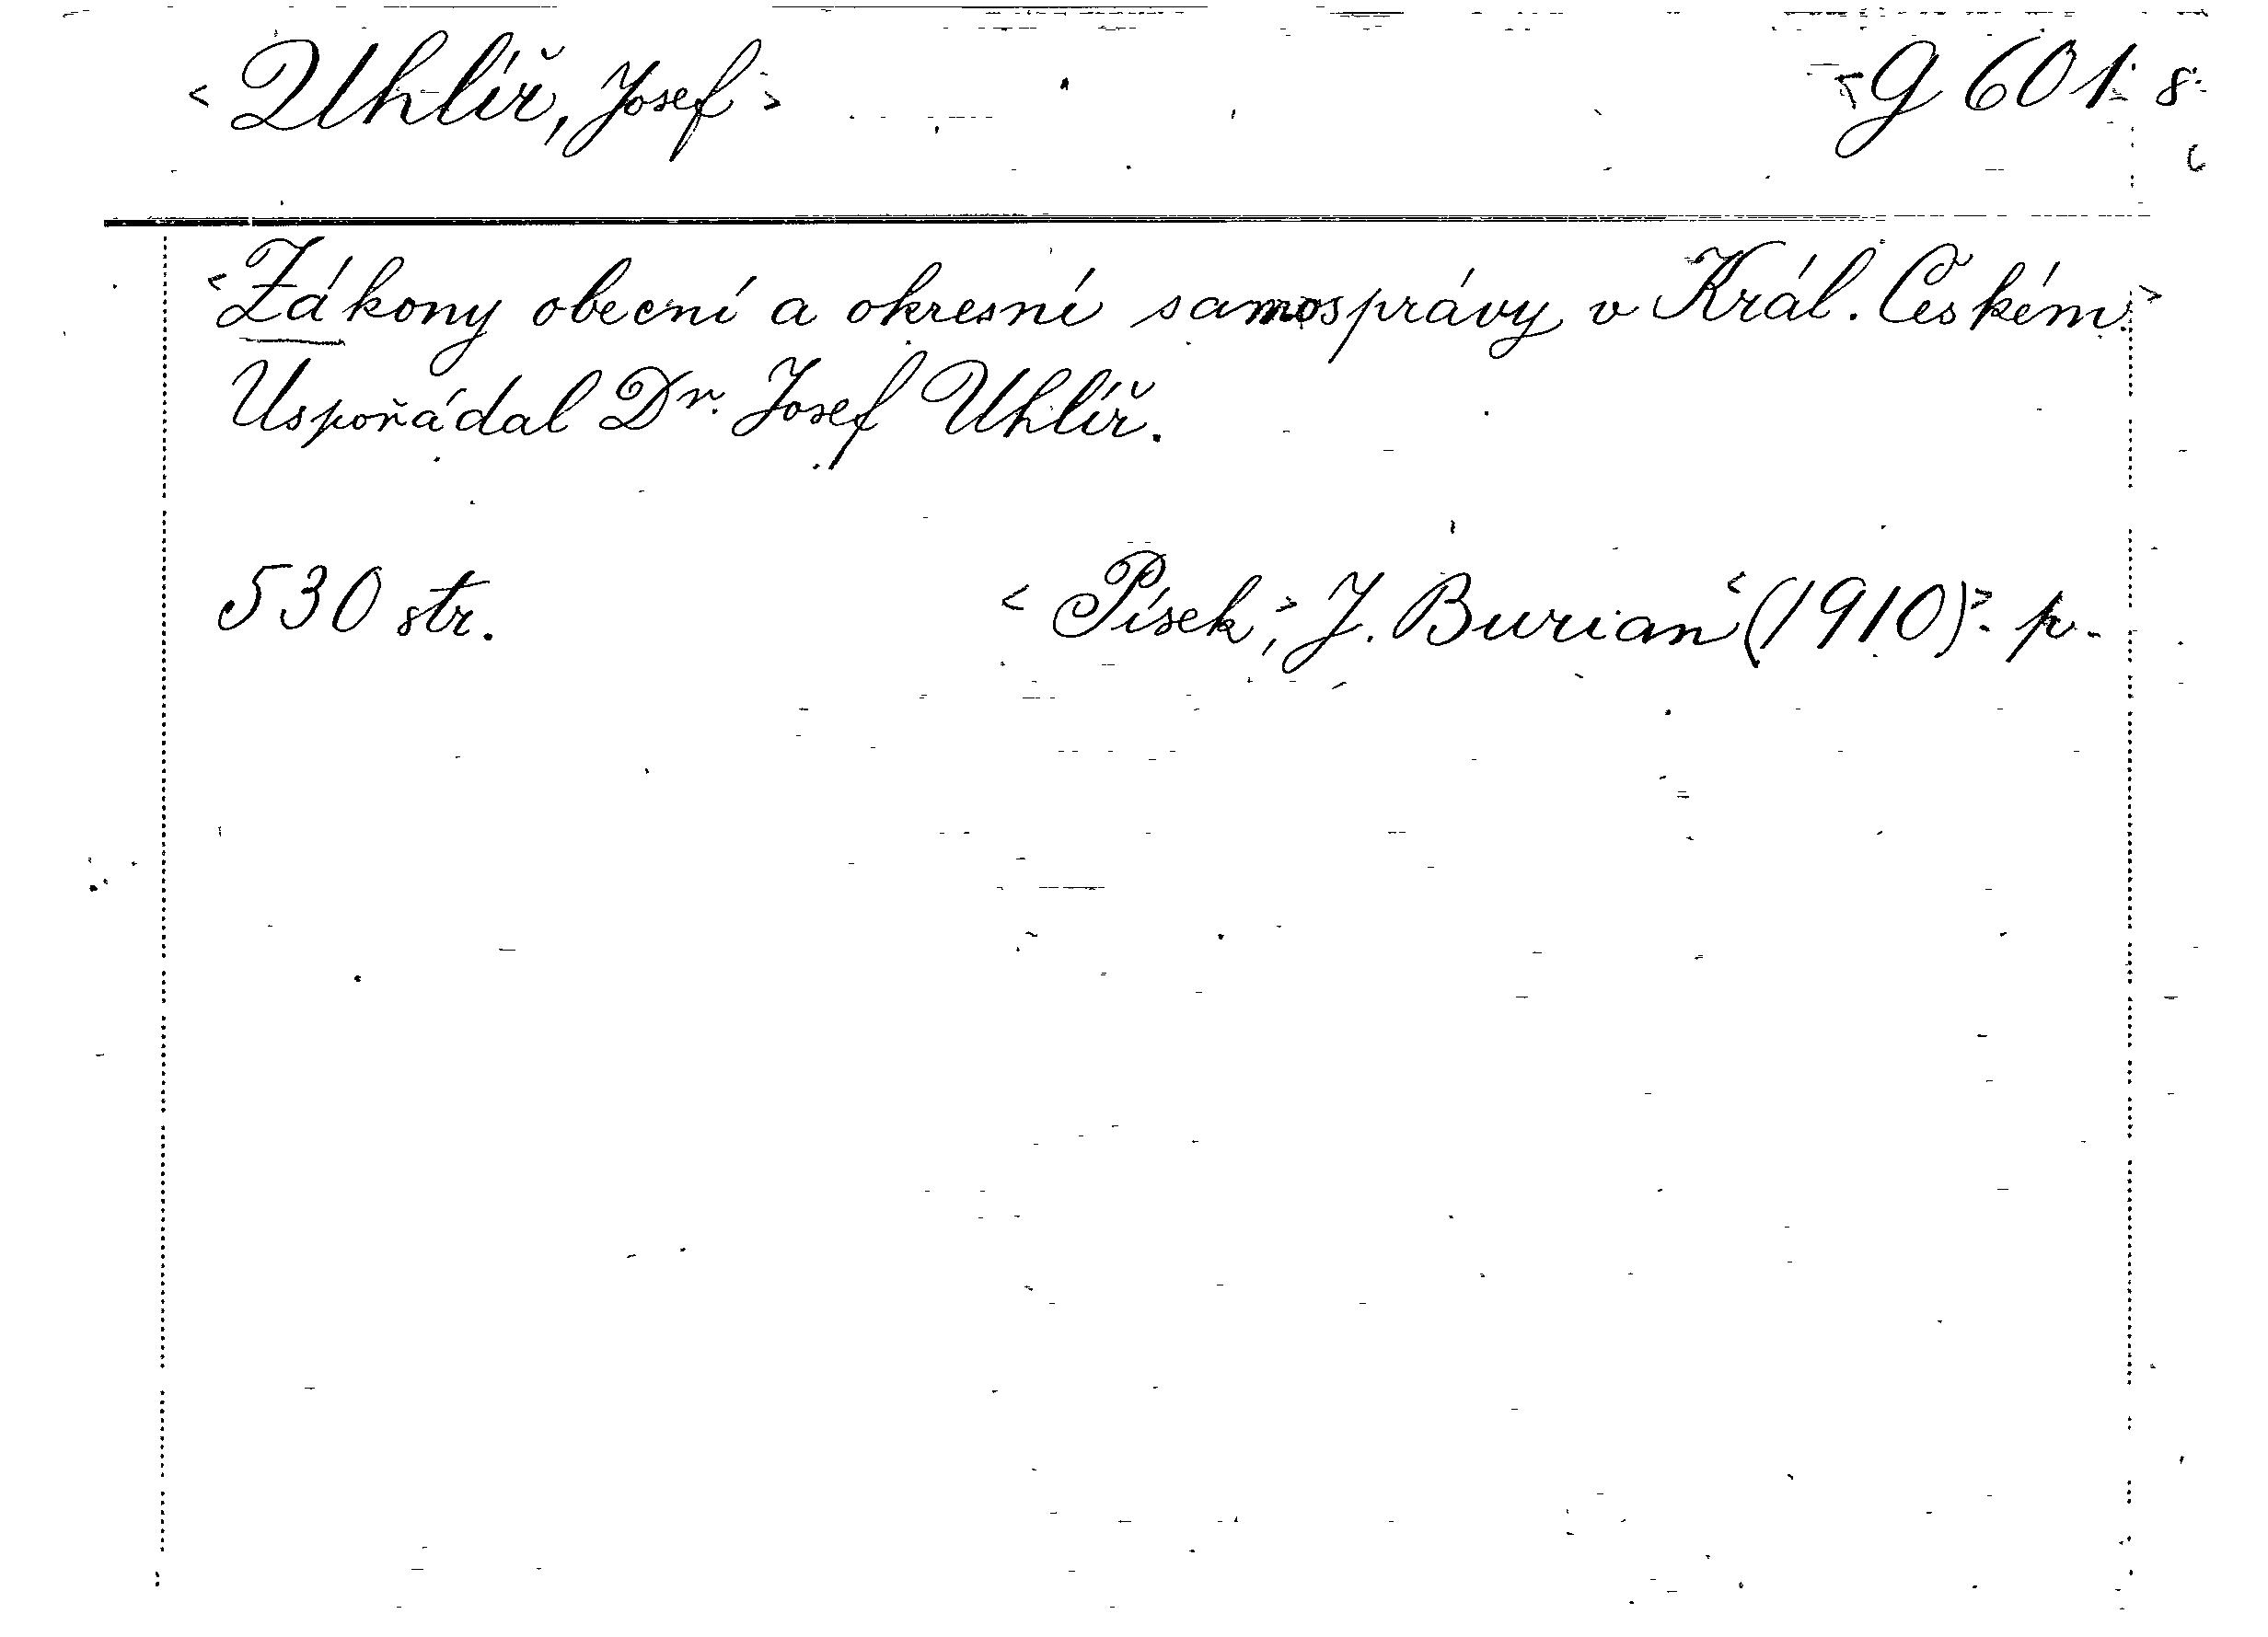 <Uhlíř, Josef> <G 601 8
<Zákony obecní a okresní samosprávy v Král. Českém.>
Uspořádal Dr. Josef Uhlíř.
530 str. <Písek,> J. Burian <(1910)>. p.